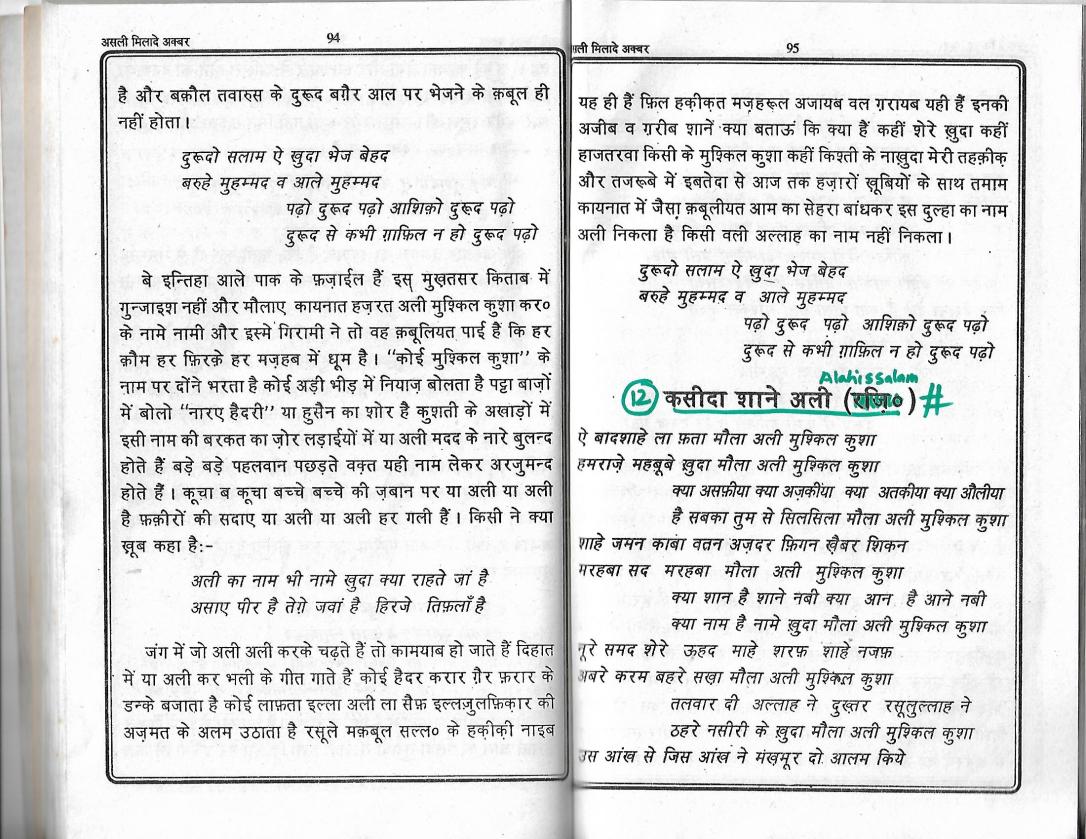 असली मिलादे अक्बर
94
है और बक़ौल तवारुस के दुरूद बग़ैर आल पर भेजने के क़बूल ही
नहीं होता।
दुरूदो सलाम ऐ ख़ुदा भेज बेहद
बरुहे मुहम्मद व आले मुहम्मद
पढ़ो दुरूद पढ़ो आशिक़ो दुरूद पढ़ो
दुरूद से कभी ग़ाफ़िल न हो दुरूद पढ़ो
बे इन्तिहा आले पाक के फ़ज़ाईल हैं इस मुख़तसर किताब में
गुन्जाइश नहीं और मौलाए कायनात हज़रत अली मुश्किल कुशा कर०
के नामे नामी और इस्मे गिरामी ने तो वह क़बूलियत पाई है कि हर
क़ौम हर फ़िरके हर मज़हब में धूम है। “कोई मुश्किल कुशा” के
नाम पर दोंने भरता है कोई अड़ी भीड़ में नियाज़ बोलता है पट्टा बाज़ों
में बोलो “नारए हैदरी” या हुसैन का शोर है कुशती के अखाड़ों में
इसी नाम की बरकत का ज़ोर लड़ाईयों में या अली मदद के नारे बुलन्द
होते हैं बड़े बड़े पहलवान पछड़ते वक़्त यही नाम लेकर अरजुमन्द
होते हैं। कूचा ब कूचा बच्चे बच्चे की ज़बान पर या अली या अली
है फ़क़ीरों की सदाए या अली या अली हर गली हैं। किसी ने क्या
ख़ूब कहा है:-
अली का नाम भी नामे ख़ुदा क्या राहते जां है
असाए पीर है तेग़े जवां है हिरजे तिफ़लाँ है
जंग में जो अली अली करके चढ़ते हैं तो कामयाब हो जाते हैं दिहात
में या अली कर भली के गीत गाते हैं कोई हैदर करार ग़ैर फ़रार के
डन्के बजाता है कोई लाफ़ता इल्ला अली ला सैफ़ इल्लज़ुलफ़िक़ार की
अज़मत के अलम उठाता है रसूले मक़बूल सल्ल० के हक़ीक़ी नाइब
अली मिलादे अक्बर
95
यह ही हैं फ़िल हक़ीक़त मज़हरूल अजायब वल ग़रायब यही हैं इनकी
अजीब व ग़रीब शानें क्या बताऊं कि क्या हैं कहीं शेरे ख़ुदा कहीं
हाजतरवा किसी के मुश्किल कुशा कहीं किश्ती के नाख़ुदा मेरी तहक़ीक़
और तजरूबे में इबतेदा से आज तक हज़ारों ख़ूबियों के साथ तमाम
कायनात में जैसा क़बूलीयत आम का सेहरा बांधकर इस दुल्हा का नाम
अली निकला है किसी वली अल्लाह का नाम नहीं निकला।
दुरूदो सलाम ऐ ख़ुदा भेज बेहद
बरुहे मुहम्मद व आले मुहम्मद
पढ़ो दुरूद पढ़ो आशिक़ो दुरूद पढ़ो
दुरूद से कभी ग़ाफ़िल न हो दुरूद पढ़ो
Alahissalam
12 कसीदा शाने अली (रज़ि०) #
ऐ बादशाहे ला फ़ता मौला अली मुश्किल कुशा
हमराज़े महबूबे ख़ुदा मौला अली मुश्किल कुशा
क्या असफ़ीया क्या अज़कीया क्या अतकीया क्या औलीया
है सबका तुम से सिलसिला मौला अली मुश्किल कुशा
शाहे जमन काबा वतन अज़दर फ़िगन ख़ैबर शिकन
मरहबा सद मरहबा मौला अली मुश्किल कुशा
क्या शान है शाने नबी क्या आन है आने नबी
क्या नाम है नामे ख़ुदा मौला अली मुश्किल कुशा
नूरे समद शेरे ऊहद माहे शरफ़ शाहे नजफ़
अबरे करम बहरे सख़ा मौला अली मुश्किल कुशा
तलवार दी अल्लाह ने दुख़्तर रसूलुल्लाह ने
ठहरे नसीरी के ख़ुदा मौला अली मुश्किल कुशा
उस आंख से जिस आंख ने मंख़मूर दो आलम किये